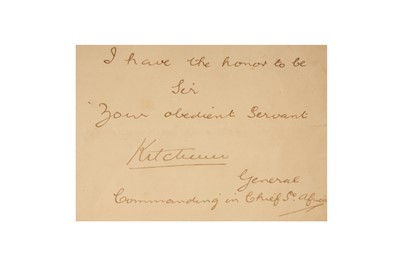 I have the honor to be
Sir
Your obedient Servant
Kitchener
General
Commanding in Chief So. Africa